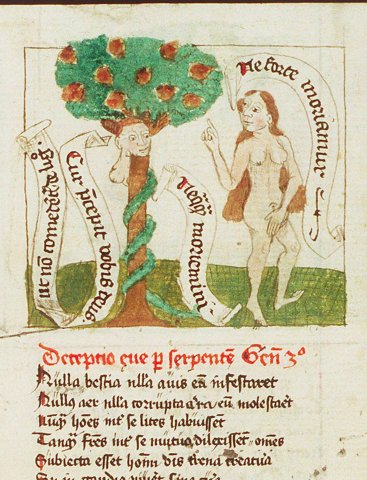 Ne forte moriamur
Cur p̄cepit vobis deus
ut nō comederēt de lig̊
moriemini
Deceptio eve ꝑ serpentē Gen̄ 3º
Nulla bestia nlla auis eū infestaret
Nullꝰ aer nlla corrupta a'ra eū molestaēt
Nūqꝫ hōes int' se lites habuissēt
Tanqꝫ frēs int' se mutuo dilexissēt omēs
Subiecta esset homi dīs terrena creatura